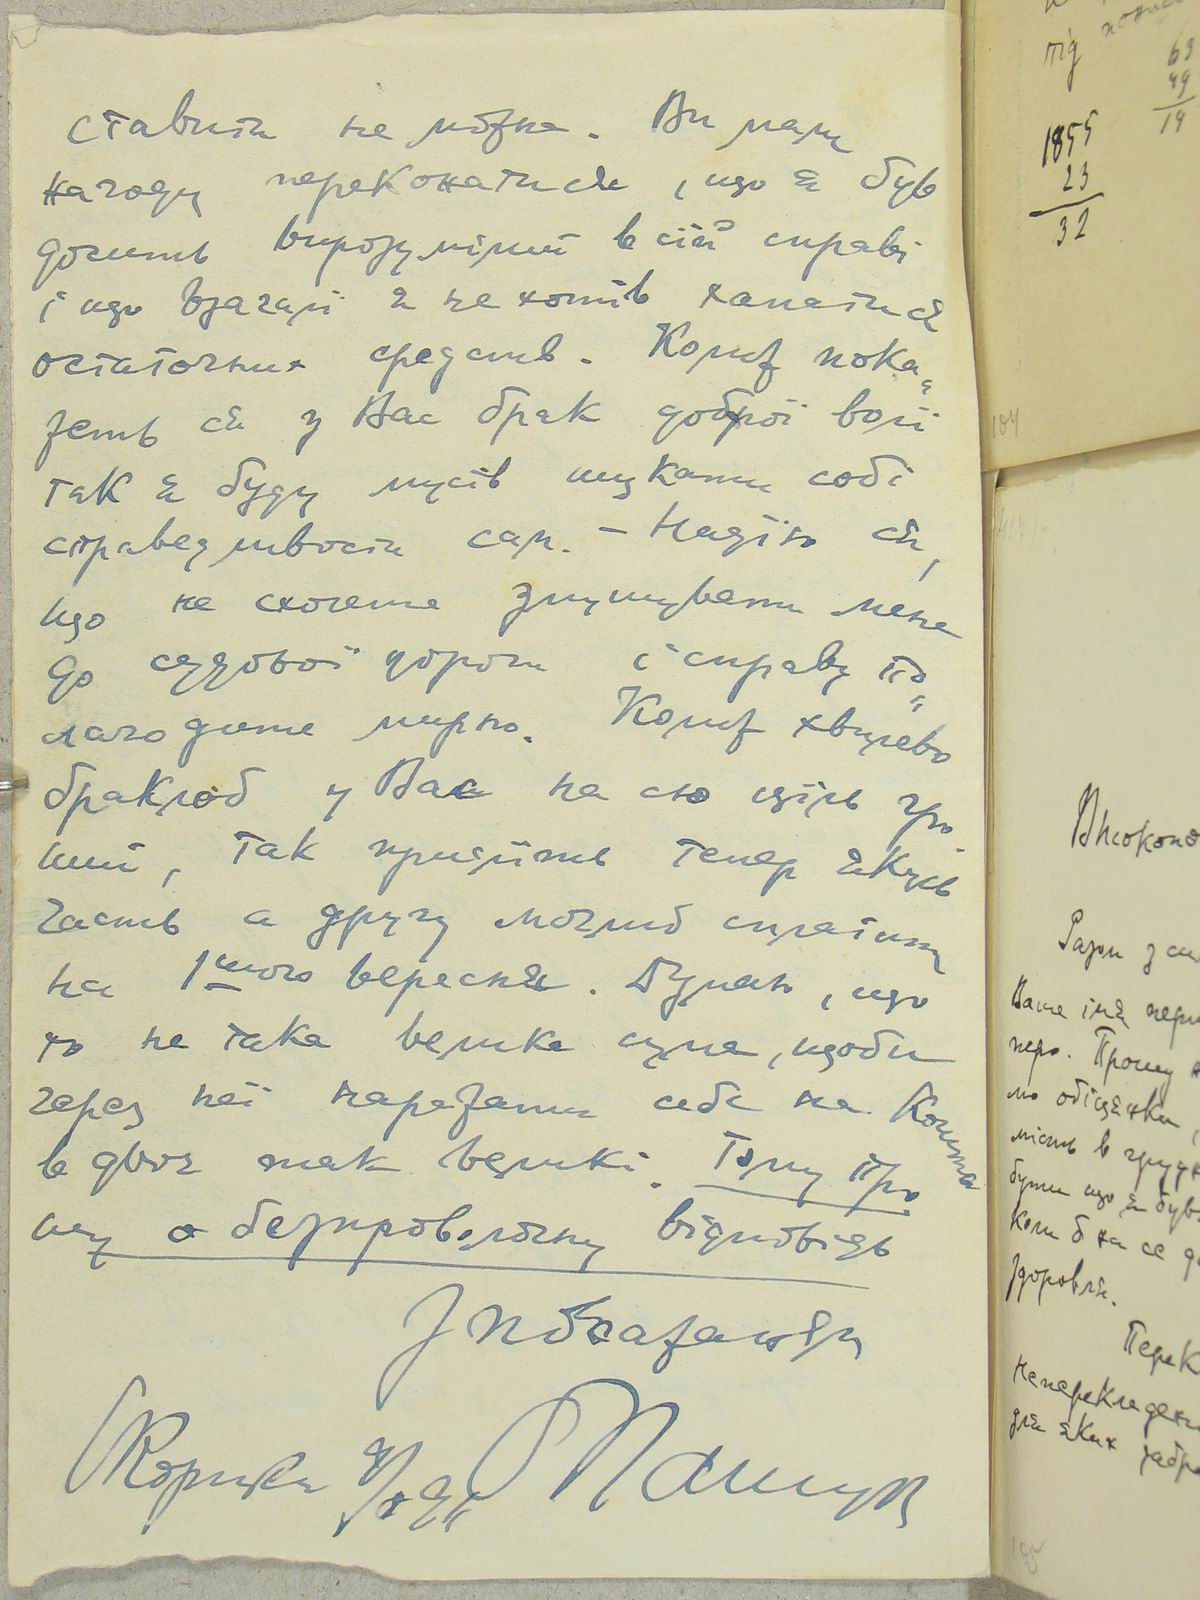 ставити не можна. Ви мали
нагоду переконати ся, що я був
досить вирозумілий в сій справі
і що взагалі я не хотів хапати ся
остаточних средств. Колиж пока„
жеть ся у Вас брак доброї волї
так я буду мусїв шукати собі
справедливости сам. — Надїю ся,
що не схочете змушувати мене
до судової дороги і справу по„
лагодите мирно. Колиж хвилево
бракло б у Вас на сю ціль гро
ший, так пришліть тепер якусь
часть а другу можна сплатити
на 1шого вересня. Думаю, що
то не така велика сума, щоби
через неї наражати себе на кошта
в двоє так великі. Тому про
шу о безпроволочну відповідь
З поважанєм
під
69
49
1855
23
32
104
Високопо
Разом з
Ваше імя
перо. Прошу
обіцянки,
мість в грудн
бути що я був
Коли б на се
здоровля.
Перек
Неперекладені
для яких